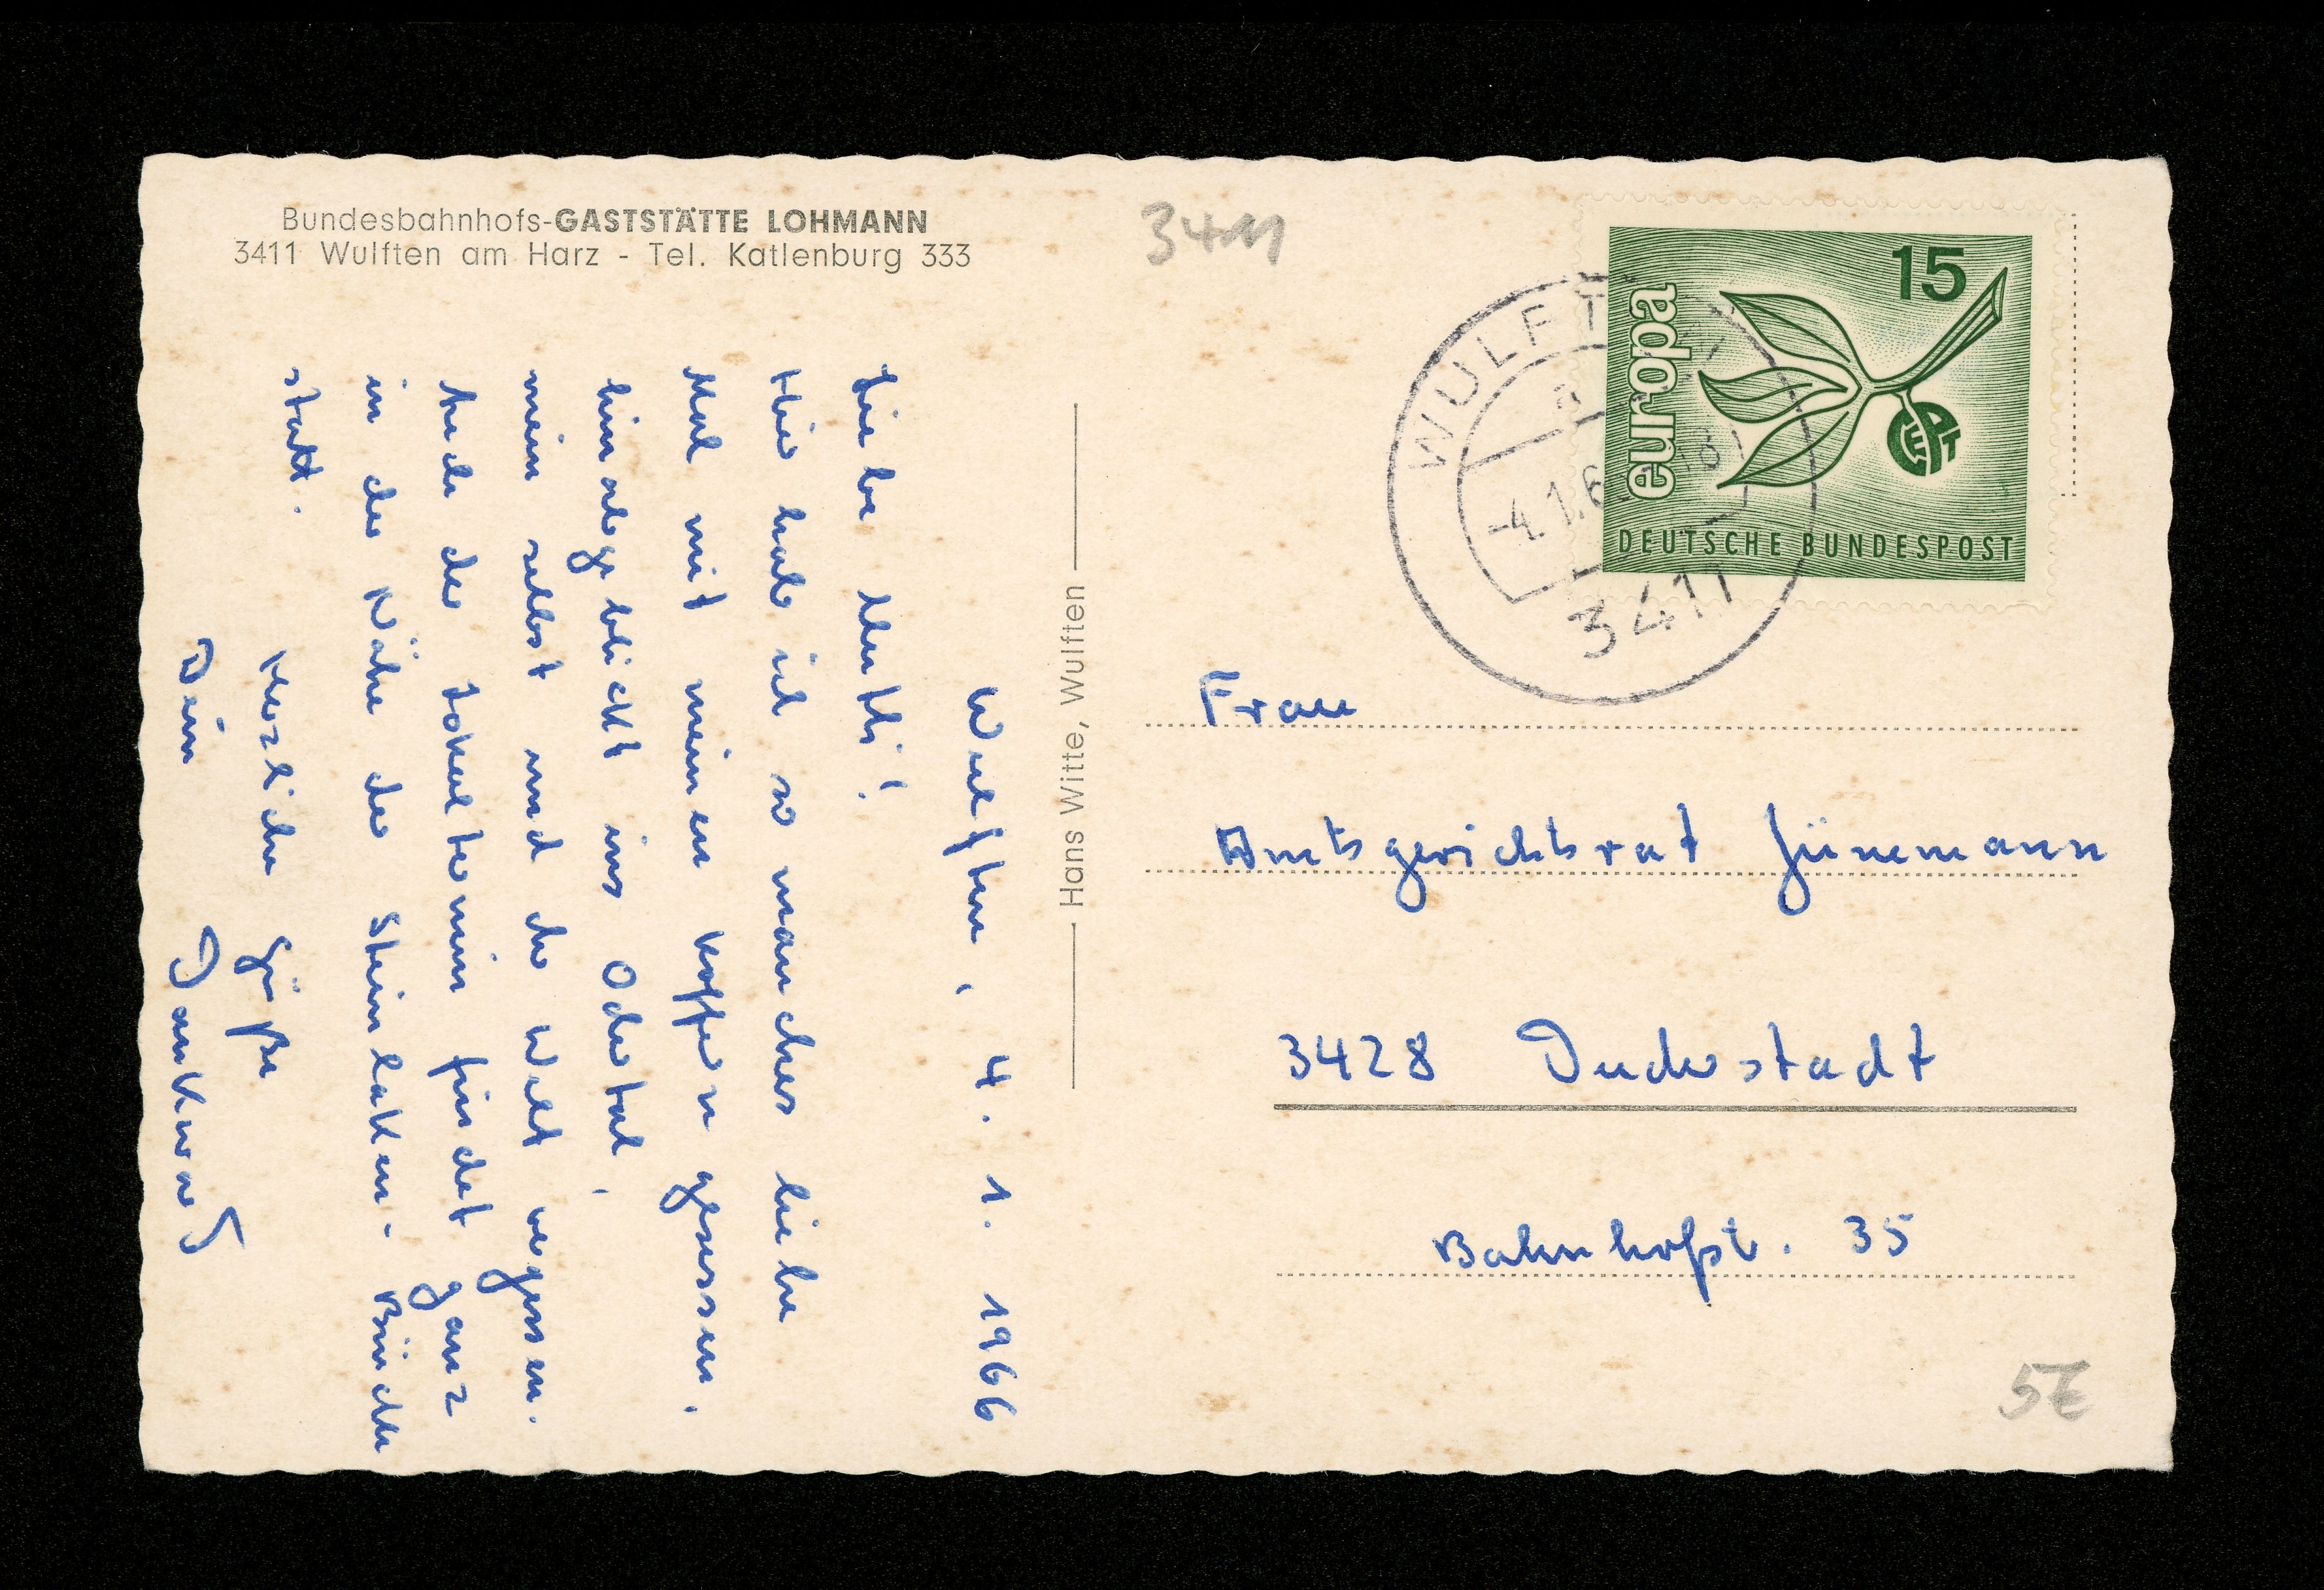 Bundesbahnhofs-GASTSTÄTTE LOHMANN
3411 Wulften am Harz - Tel. Katlenburg 333
Wulften, 4. 1. 1966
Liebe Muthi!
Hier habe ich so manches liebe
Mal mit meinen Koffern gesessen,
hinabgeblickt ins Odertal,
mein selbst und der Welt vergessen.
Heute der Lokaltermin findet ganz
in der Nähe der Steinlaken-Brücke
statt.
Herzliche Grüße
Dein
Hans Witte, Wulften
3411
15
europa
CEPT
DEUTSCHE BUNDESPOST
WULFTEN
-4.1.6
3411
Frau
Amtsgerichtsrat Jünemann
3428 Duderstadt
Bahnhofstr. 35
5€